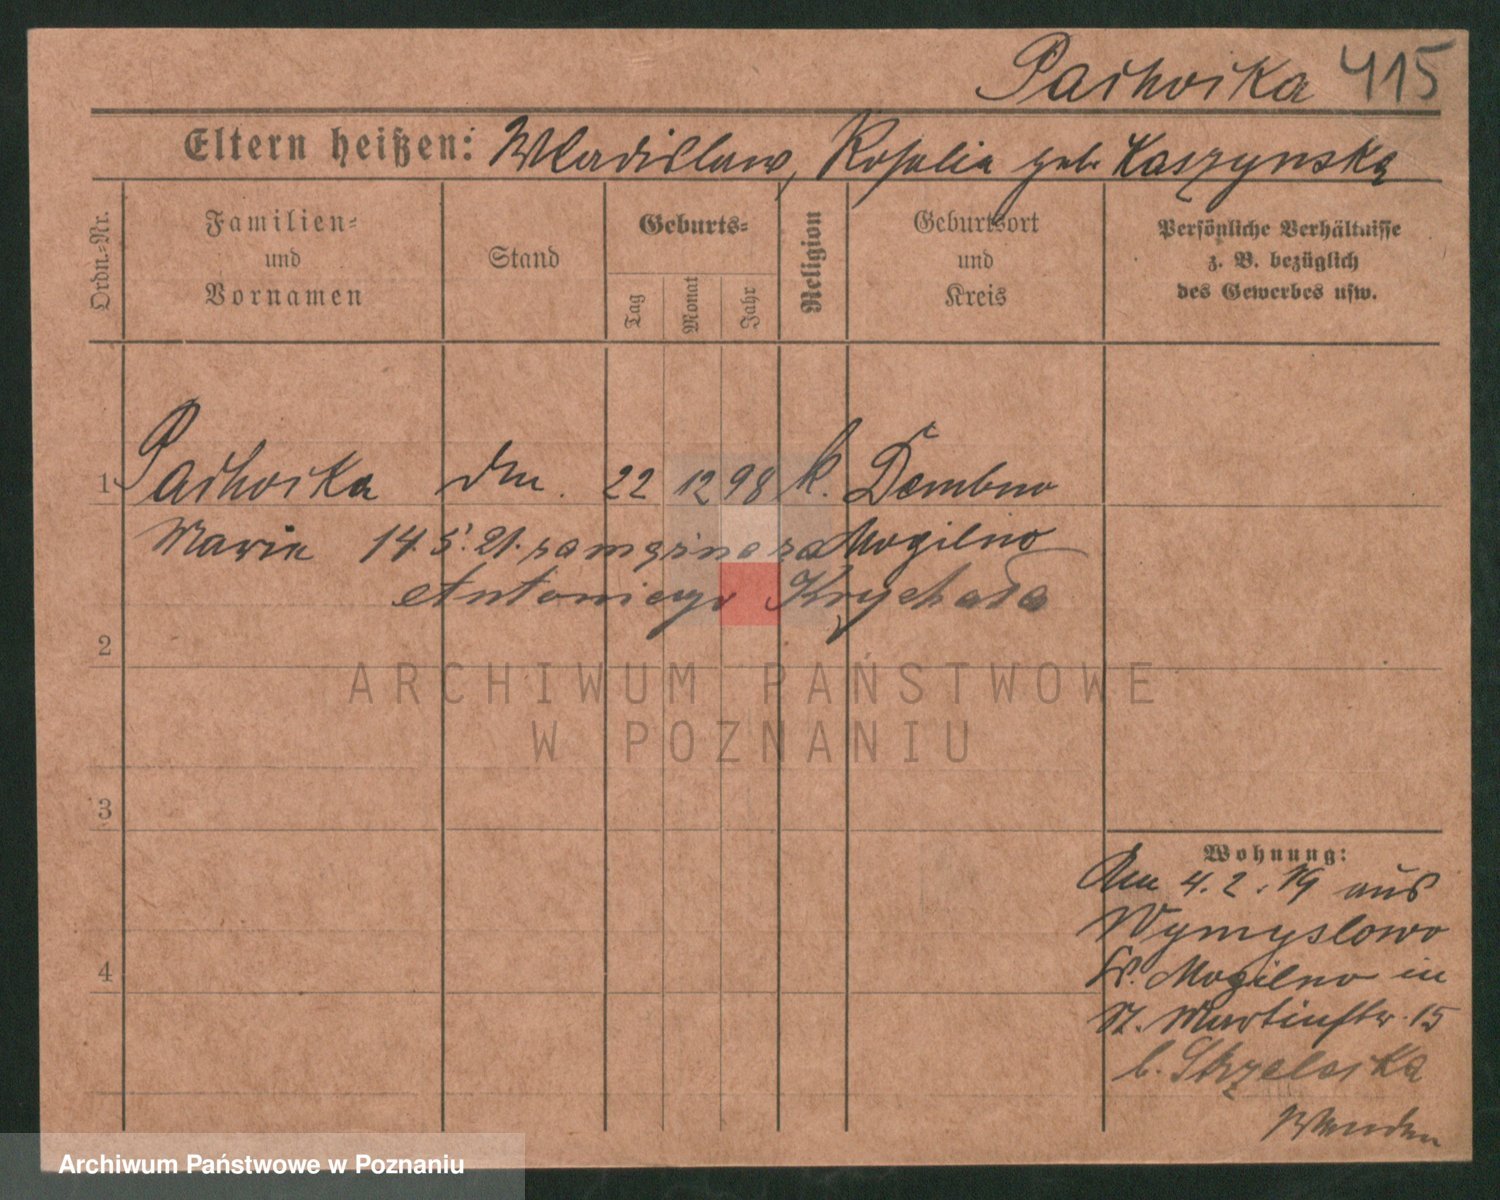 Pachocka 415
Eltern heißen: Wladislaw, Rosalia geb. Kaszynska
Ordn.-Nr.
Familien-
und
Vornamen
Stand
Geburts-
Tag
Monat
Jahr
Religion
Geburtsort
und
Kreis
Persönliche Verhältnisse
z. B. bezüglich
des Gewerbes usw.
1 Pachocka 22 12 98 k. Dembno
Marie 14.5.21. zamężna za Mogilno
Antoniego Krychała
2
ARCHIWUM PAŃSTWOWE
W POZNANIU
3
Wohnung:
Am 4.2.19 aus
Wymyslowo
4
Kr. Mogilno in
St. Martinstr. 15
b. Strzelecka
Archiwum Państwowe w Poznaniu